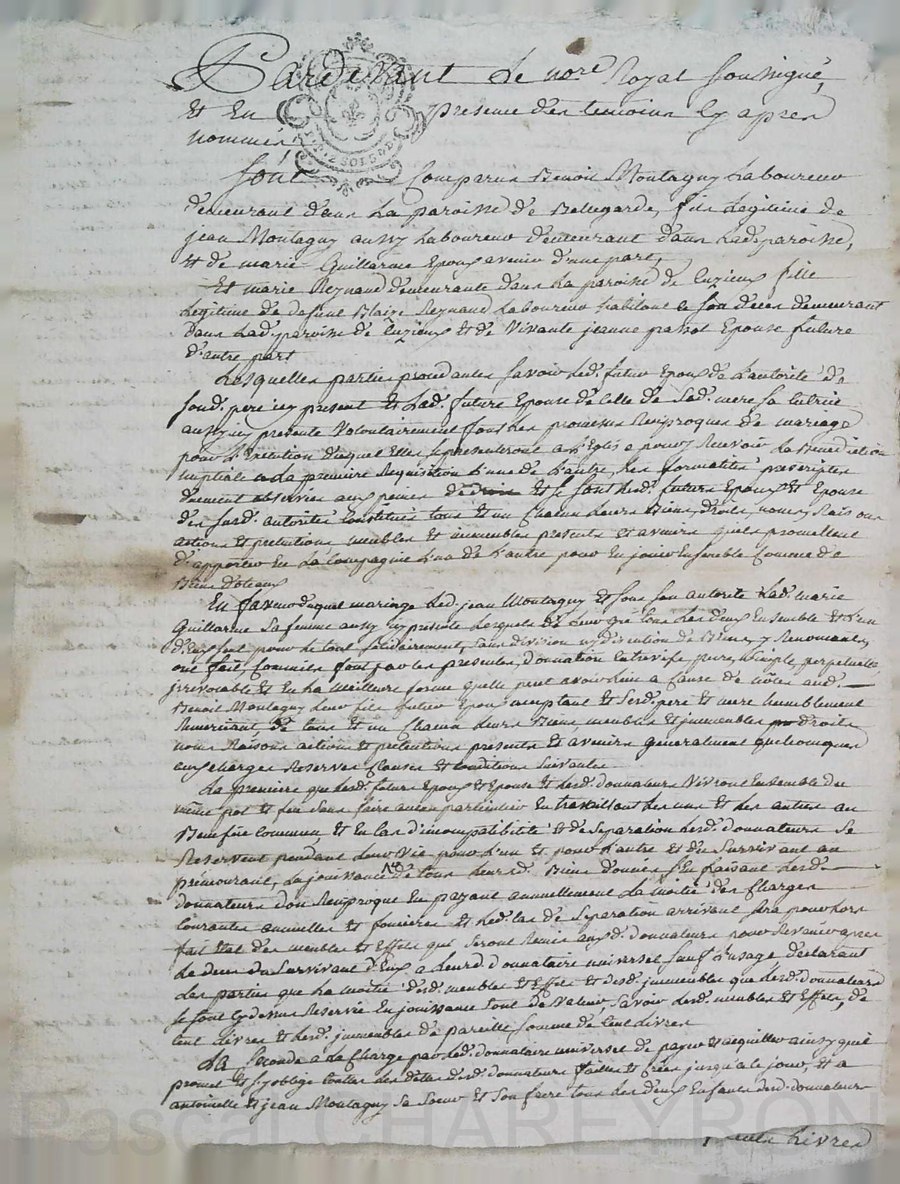 Pardevant Le no.re Royal soussigné,
Et En presence des temoins Cy apres
nommés
Sont Comparus Benoit Montagny Laboureur
demeurant dans La paroisse de Bellegarde, fils Legitime de
jean Montagny aussy Laboureur demeurant dans Lad. paroisse,
et de marie Guillarme Epoux avenir d'une part,
Et marie Reynaud demeurante dans La paroisse de Cuzieux fille
Legitime de defunt Blaise Reynaud Laboureur habitant a son deces demeurant
dans Lad. paroisse de Cuzieux Et de Vivante jeanne Epouse future
d'autre part
Lesquelles parties procedantes savoir Led. futur Epoux de L'autorité de
sond. pere icy present et Lad. future Epouse de celle de Sad. mere sa tutrice
aussy icy presente Volontairement font les promesses Reciproques de mariage
pour L'execution duquel Elles se presenteront a L'Eglise pour y Recevoir La Benediction
nuptiale a La premiere Requisition L'une de L'autre, Les formalités prescriptes
duement observées aux peines de droit Et se sont Lesd. futurs Epoux Et Epouse
des susd. autorités Constitués tous et un Chacun Leurs Biens, droits, noms, Raisons
actions Et pretentions meubles Et immeubles presents et avenirs quels promettent
d'apporter En La Compagnie L'un de L'autre pour En jouir Ensemble Comme de
Biens dotaux
En faveur duquel mariage Led. jean Montagny Et sous son autorité Lad. marie
Guillarme Sa femme aussy icy presente Lesquels de leur gré tous Les deux Ensemble Et L'un
d'Eux seul pour le tout solidairement, sans division ny discution de Biens, y Renonceants,
ont fait, Comme ils font par les presentes, donnation Entrevifs, pure, simple, perpetuelle,
irrevocable Et En La meilleure forme quelle peut avoir Lieu a Cause de noces aud.
Benoit Montagny Leur fils futur Epoux acceptant Et Sesd. pere et mere humblement
Remerciant de tous et un Chacun Leurs Biens meubles Et immeubles droits
noms Raisons actions Et pretentions presents Et avenirs generalement quelconques
aux charges Reserves Clauses Et Conditions Suivantes
La premiere que Lesd. futurs Epoux et Epouse Et Lesd. donnateurs Vivront Ensemble du
même pot et feu sans faire aucun particulier En travaillant Les uns et Les autres au
Benefice Commun, Et En Cas d'incompatibilité Et de Separation Lesd. donnateurs Se
Reservent pendant Leur Vie pour L'un Et pour L'autre Et du Survivant au
prémourant, La jouissance de tous Leursd. Biens donnés S'En faisant Lesd.
donnateurs don Reciproque En payant annuellement La moitié des Charges
Courantes annuelles et foncieres Et Led. Cas de Separation arrivant sera pour Lors
fait Etat des meubles Et Effets qui seront Remis auxd. donnateurs pour Revenir apres
Le deces du Survivant d'Eux a Leurd. donnataire universel sauf L'usage declarant
Les parties que La moitié desd. meubles Et Effets et desd. immeubles que Lesd. donnateurs
se sont Cy dessus Reservée En jouissance sont de Valeur Savoir Lesd. meubles Et Effets, de
Cent Livres et Lesd. immeubles de pareille somme de Cent Livres
La Seconde a La Charge par Led. donnataire universel de payer Et acquitter ainsy qu'il
promet Et s'y oblige toutes Les dettes desd. donnateurs faites Et Crées jusqu'a Ce jour, et a
antoinette Et jean Montagny Sa Soeur et Son frere tous Les deux Enfants desd. donnateurs
Livres
Pascal CHAREYRON